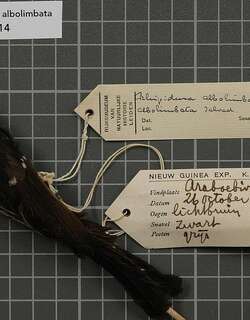 albolimbata
14
RIJKSMUSEUM
VAN
NATUURLIJKE
HISTORIE
LEIDEN
Rhipidura albolimbata
albolimbata Salvad.
Dat.
Loc.
NIEUW GUINEA EXP. K.
Vindplaats
Datum 26 october
Oogen lichtbruin
Snavel zwart
Pooten grijs